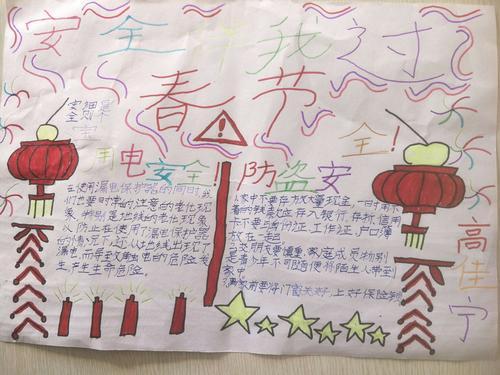 安全伴我过
春节
用电安全!
防盗安全!
在使用漏电保护器的同时,我
们也要时刻注意的老化现
象,特别是地线的老化现象
以防止在使用了漏电保护器
的情况下,还从地线出现了
漏电,而导致触电的危险发
生,产生生命危险。
家中不要存放大量现金,一时用不
着的钱最好存入银行,存折、信用
卡不要与身份证、工作证、户口簿
放在一起
交朋友要慎重,家庭成员特别
是青少年不可随便将陌生人带到
家中
离家前要将门窗关好,上好保险锁
高佳宁